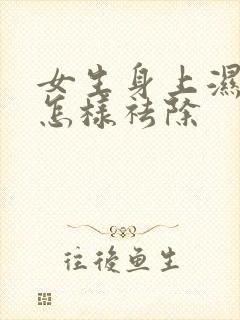 女生身上濕
怎樣祛除
往後魚生